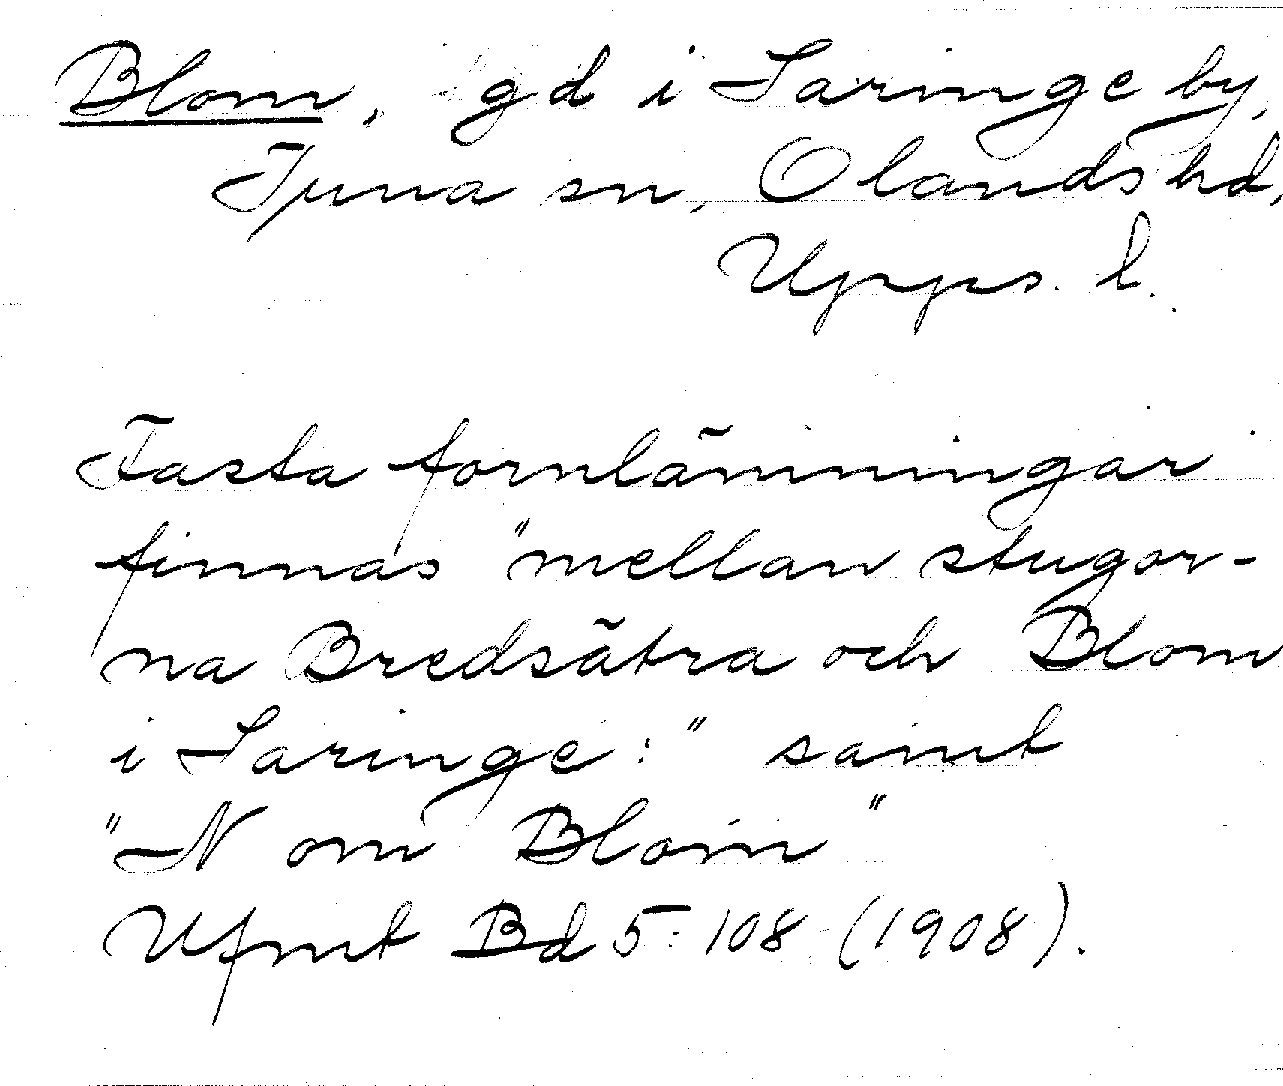 Blom, gd i Saringe by,
Tuna sn, Olands hd,
Upps. l.
Fasta fornlämningar
finnas "mellan stugor-
na Bredsätra och Blom
i Saringe:" samt
"N om Blom"
Ufmt Bd 5:108 (1908).